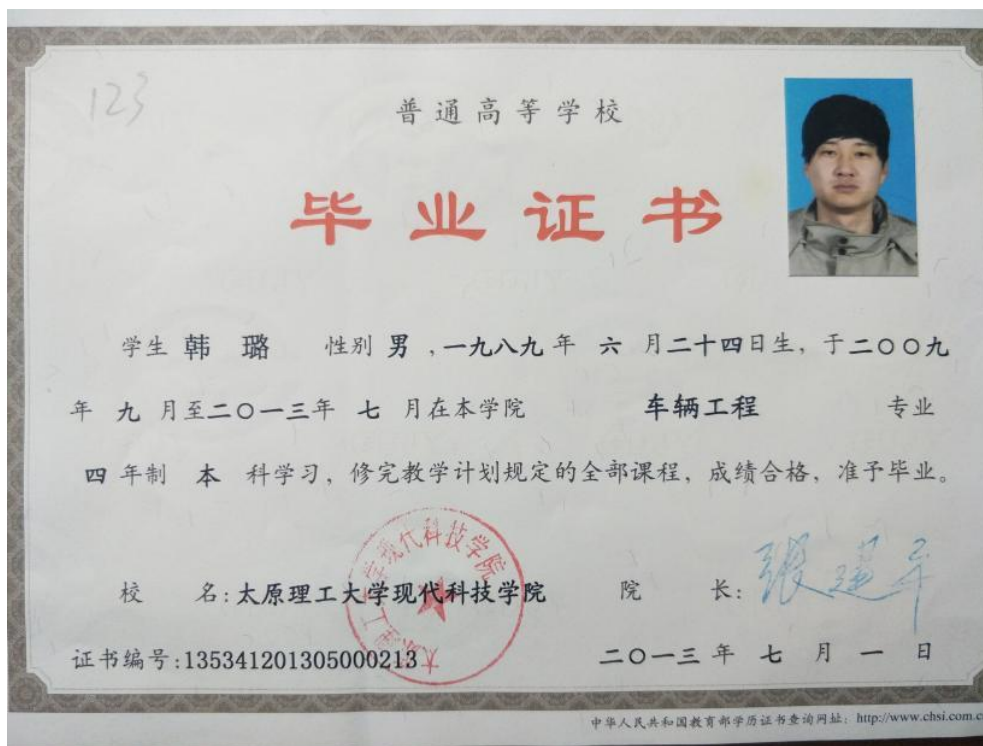 123
普通高等学校
毕业证书
学生 韩 璐 性别 男 ,一九八九年 六 月二十四日生, 于二〇〇九
年 九 月至二〇一三年 七 月在本学院 车辆工程 专业
四 年制 本 科学习, 修完教学计划规定的全部课程, 成绩合格, 准予毕业。
太原理工大学现代科技学院
校 名: 太原理工大学现代科技学院 院 长: 张建平
证书编号:135341201305000213 二〇一三 年 七 月 一 日
中华人民共和国教育部学历证书查询网址: http://www.chsi.com.c